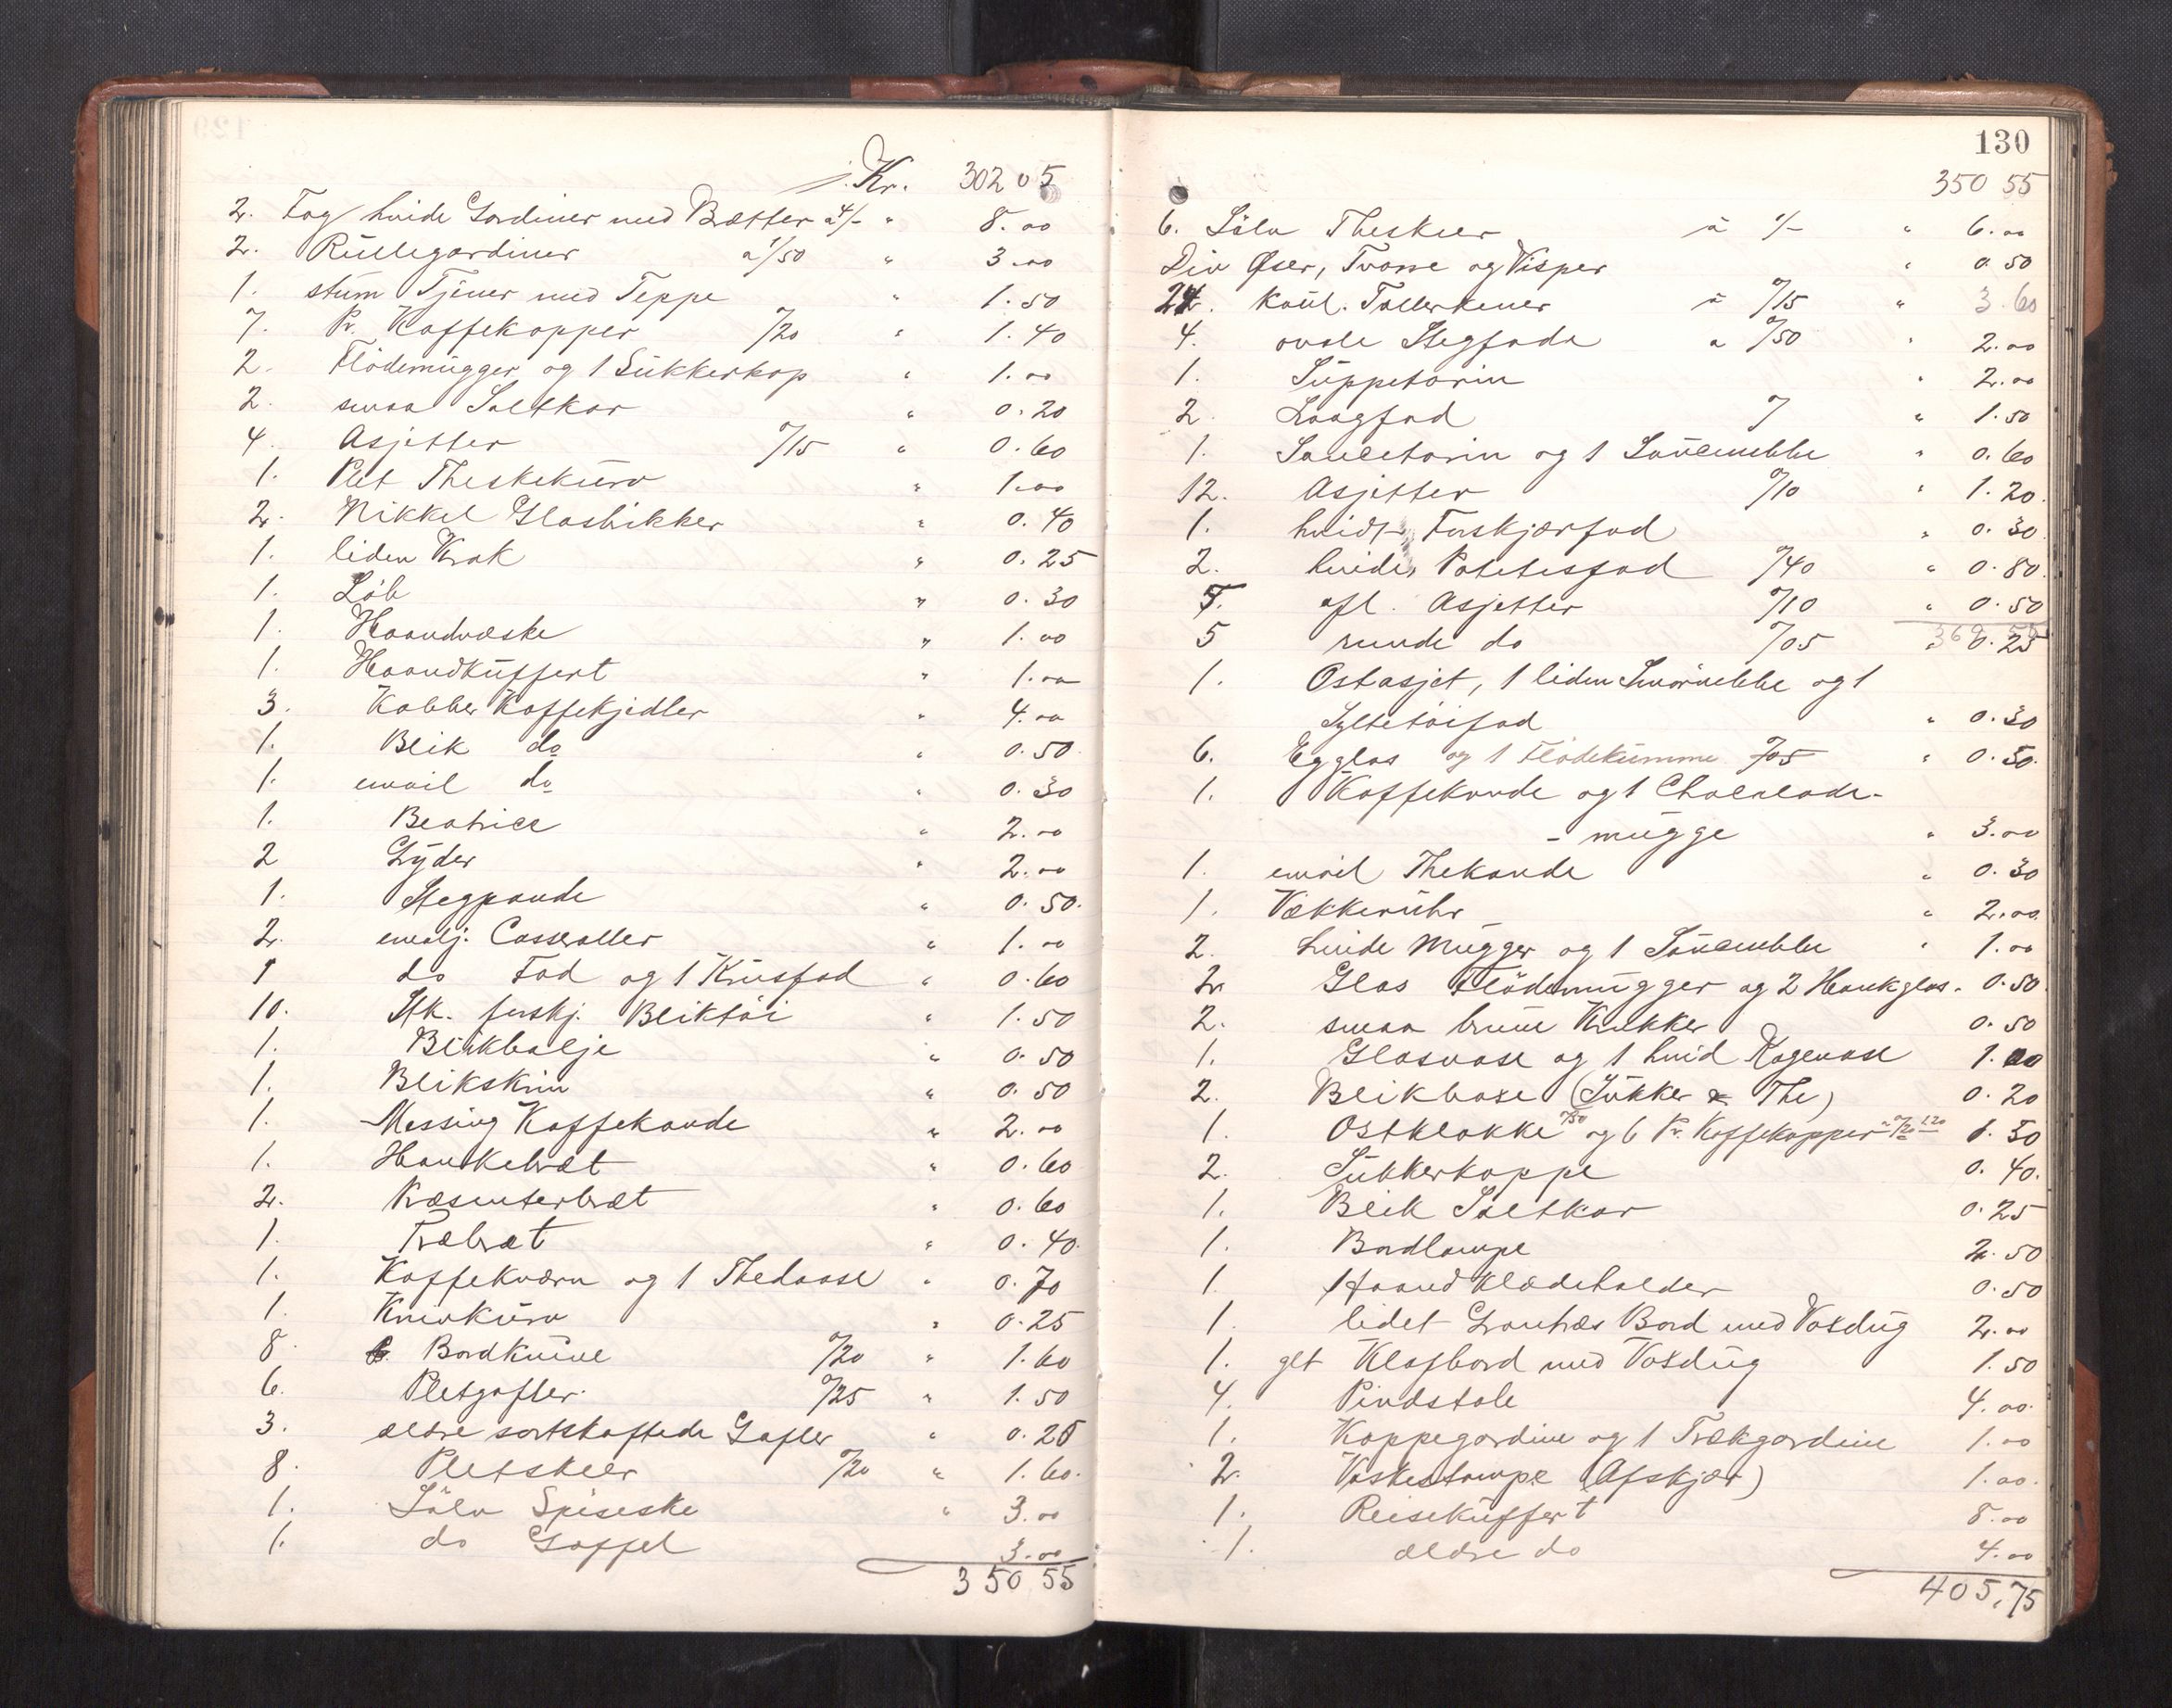 Kr. 302 05
2. Fag hvide Gardiner med Brætter a 4/- " 8.00
2. Rullegardiner a 1/50 " 3.00
1. stum Tjener med Teppe " 1.50
7. Pr. Kaffekopper 0/20 " 1.40
2. Flödemugger og 1 Sukkerkop " 1.00
2. smaa Saltkar " 0.20
4. Asjetter 0/15 " 0.60
1. Plet Theskekurv " 1.00
2. Nikkel Glasbikker " 0.40
1. liden Krak " 0.25
1. Löb " 0.30
1. Haandvæske " 1.00
1. Haandkuffert " 1.00
3. Kobber Kaffekjedler " 4.00
1. Blik do " 0.50
1. email do " 0.30
1. Beatrice " 2.00
2 Gryder " 2.00
1. Stegpande " 0.50.
2. emalj. Casseroller " 1.00
1 do Fad og 1 Krusfad " 0.60
10. Stk. forskj. Bliktöi " 1.50
1. Blikbalje " 0.50
1. Blikskrin " 0.50
1. Messing Kaffekande " 2.00
1. Hankebræt " 0.60
2. Kæsenterbræt " 0.60
1. Træbræt " 0.40.
1. Kaffekværn og 1 Thedaase " 0.70
1. Knivkurv " 0.25
8. Bordknive 0/20 " 1.60
6. Pletgafler. 0/25 " 1.50
3. ældre sortskaftede Gafler " 0.20
8. Pletskeer 0/20 " 1.60.
1. Sölv Spiseske " 3.00
1. do Gaffel 3.00
350 55
130
350 55
6. Sölv Theskeer à 1/- " 6.00
Div Øser, Tvarre og Visper " 0.50
24. koul. Tallerkener à 0/15 " 3.60
4. ovale Stegfade a 0/50 " 2.00
1. Suppetorin " 2.00
2. Laagfad " 1.50
1. Saucetorin og 1 Saucenebbe " 0.60
12. Asjetter 0/10 " 1.20.
1. hvidt Forskjærfad " 0.30.
2. hvide Potetesfad 0/40 " 0.80.
5. afl. Asjetter 0/10 " 0.50
5 runde do 0/05 " 0.25
1. Ostasjet, 1 liden Smörnebbe og 1
Syltetöifad " 0.30
6. Egglas og 1 Flödekumme 0/05 " 0.50.
1. Kaffekande og 1 Chocolade-
- mugge " 3.00
1. email Thekande " 0.30
1. Vækkeruhr " 2.00
2. hvide Mugger og 1 Saucenebbe " 1.00
2. Glas Flödemugger og 2 Hankglas. 0.50.
2. smaa brune Krukker 0.50
1. Glasvase og 1 hvid Kagevase 1.00
2. Blikboxe (Sukker & The) 0.20
1. Ostklokke 0/50 og 6 Pr. Kaffekopper a 0/20 1.20 1.50
2. Sukkerkoppe 0.40.
1. Blik Saltkar 0.25
1. Bordlampe 2.50
1. Haandklædeholder 0.50
1. lidet Grantræs Bord med Voxdug 2.00
1. glt Klafbord med Voxdug 1.50
4. Pindstole 4.00.
1. Kappegardine og 1 Trækgardine 1.00
2. Vaskestampe (Afskjær) 1.00.
1. Reisekuffert 8.00
1. ældre do 4.00
405,75